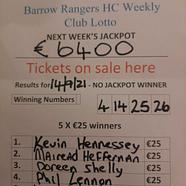 Barrow Rangers HC Weekly
Club Lotto
NEXT WEEK'S JACKPOT
€6400
Tickets on sale here
Results for 14/9/21 - NO JACKPOT WINNER
Winning Numbers 4 14 25 26
5 X €25 winners
1. Kevin Hennessey €25
2. Mairead Heffernan €25
3. Doreen Shelly €25
4. Phil Lennon €25